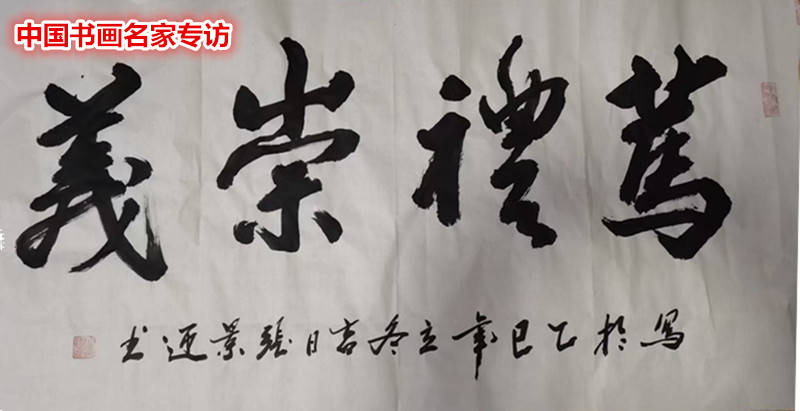 中国书画名家专访
篤禮崇義
寫於乙巳年立冬吉日張景迎书